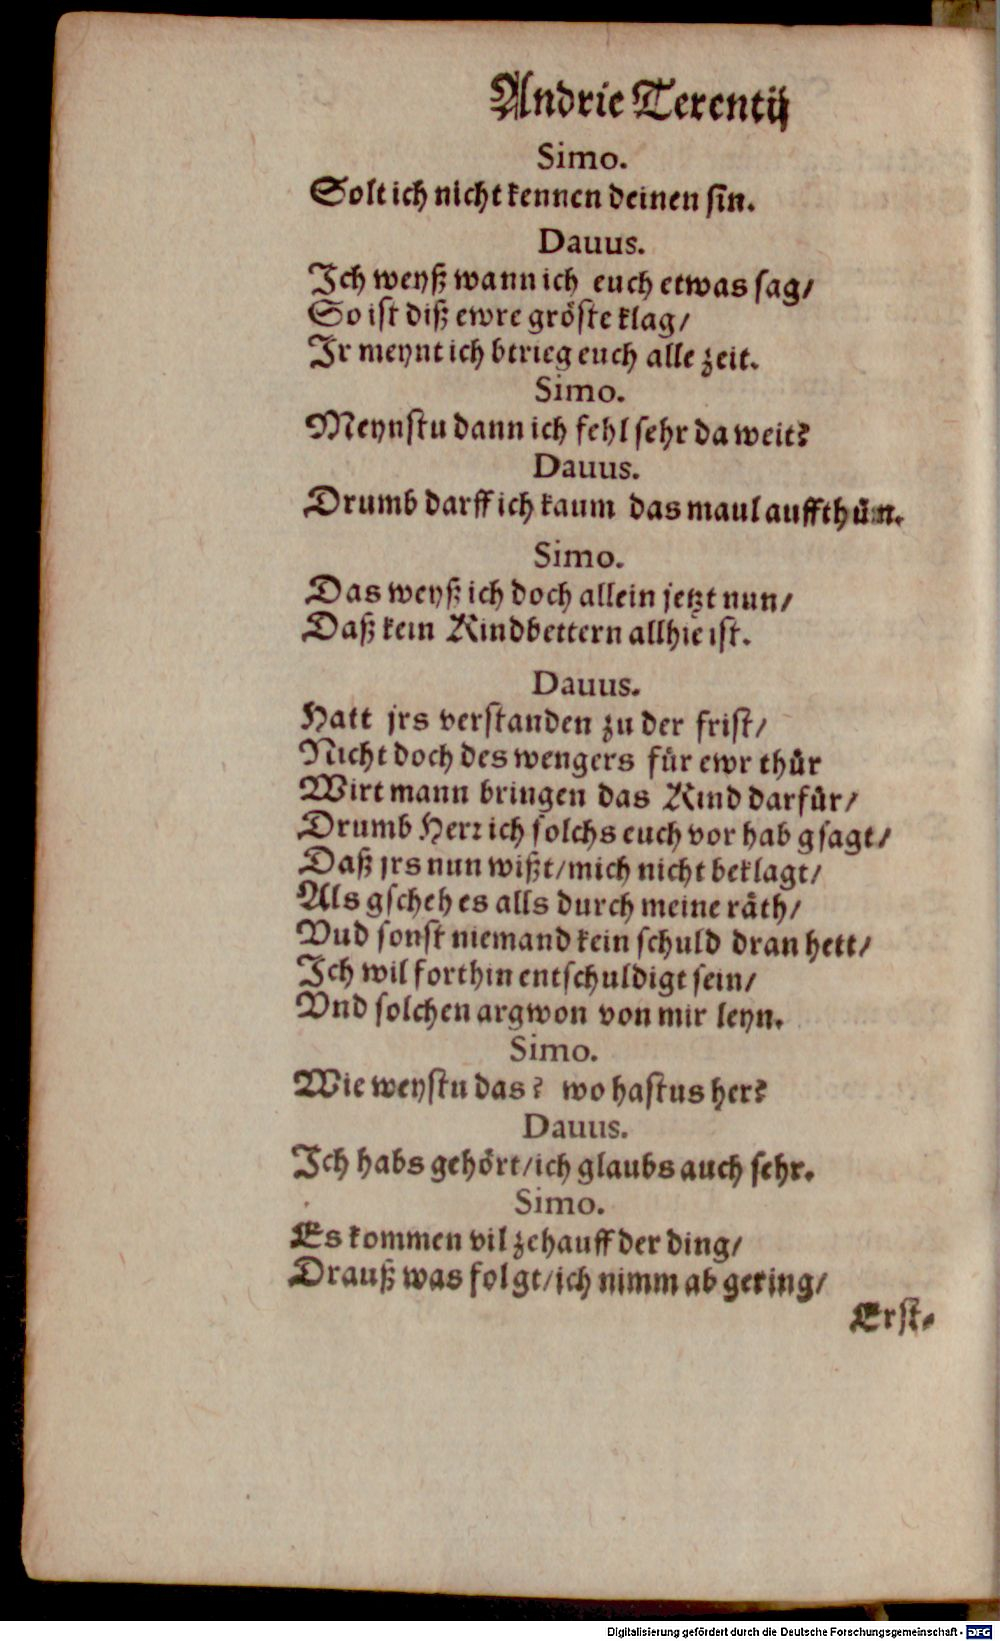 Andrie Terentij
Simo.
Solt ich nicht kennen deinen sin.
Dauus.
Ich weyß wann ich euch etwas sag/
So ist diß ewre gröste klag/
Ir meynt ich btrieg euch alle zeit.
Simo.
Meynstu dann ich fehl sehr da weit?
Dauus.
Drumb darff ich kaum das maul auffthůn.
Simo.
Das weyß ich doch allein jetzt nun/
Daß kein Kindbettern allhie ist.
Dauus.
Hatt jrs verstanden zu der frist/
Nicht doch des wengers für ewr thür
Wirt mann bringen das Kind darfür/
Drumb Herr ich solchs euch vor hab gsagt/
Daß jrs nun wißt/mich nicht beklagt/
Als gscheh es alls durch meine räth/
Vud sonst niemand kein schuld dran hett/
Ich wil forthin entschuldigt sein/
Vnd solchen argwon von mir leyn.
Simo.
Wie weystu das? wo hastus her?
Dauus.
Ich habs gehört/ich glaubs auch sehr.
Simo.
Es kommen vil zehauff der ding/
Drauß was folgt/ich nimm ab gering/
Erst-
Digitalisierung gefördert durch die Deutsche Forschungsgemeinschaft - DFG